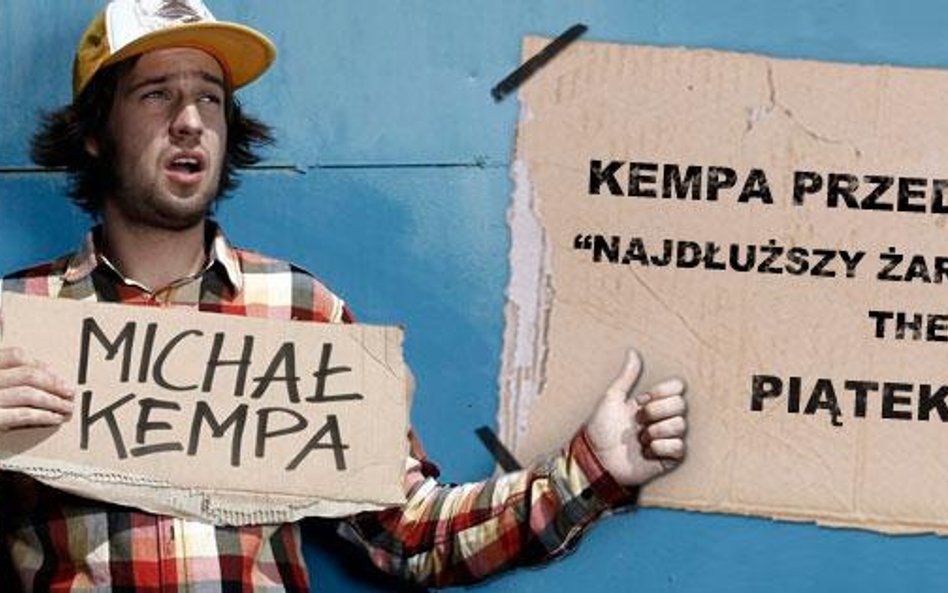 MICHAŁ
KEMPA
KEMPA PRZED
“NAJDŁUŻSZY ŻAR
THE
PIĄTEK